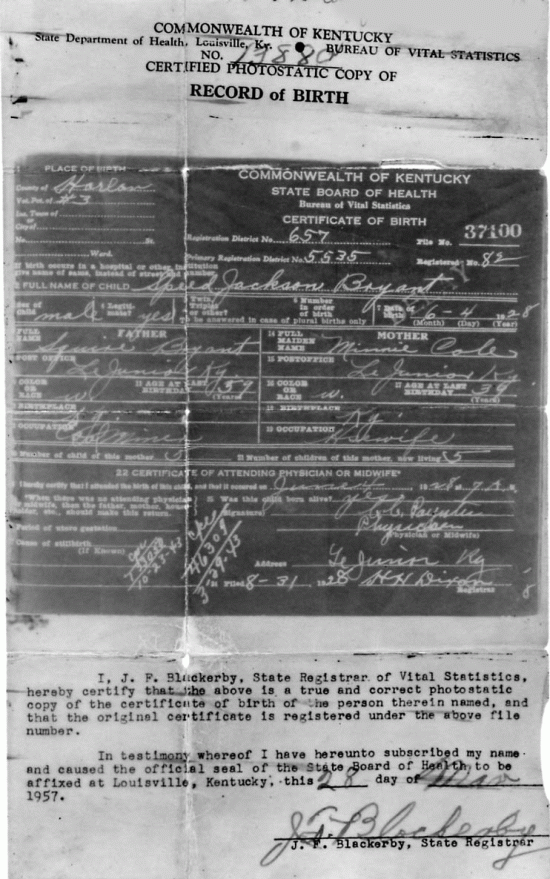 COMMONWEALTH OF KENTUCKY
State Department of Health, Louisville, Ky. BUREAU OF VITAL STATISTICS
NO. 17880
CERTIFIED PHOTOSTATIC COPY OF
RECORD of BIRTH
1 PLACE OF BIRTH
County of Harlan
Vot. Pct. of #3
Inc. Town of
or
City of
No. St.
Ward.
If birth occurs in a hospital or other institution
give name of same, instead of street and number.
COMMONWEALTH OF KENTUCKY
STATE BOARD OF HEALTH
Bureau of Vital Statistics
CERTIFICATE OF BIRTH
Registration District No. 657 File No. 37100
Primary Registration District No. 5535 Registered No. 82
2 FULL NAME OF CHILD Speed Jackson Bryant
3 Sex of child male 4 Legitimate? yes 5 Twin, Triplet or other? 6 Number in order of birth 7 Date of birth 6-4 1928
(To be answered in case of plural births only) (Month) (Day) (Year)
FATHER
FULL NAME Bryant
POST OFFICE LeJunior Ky
COLOR OR RACE w. 11 AGE AT LAST BIRTHDAY 59 (Years)
BIRTHPLACE Ky
OCCUPATION Coal Miner
MOTHER
14 FULL MAIDEN NAME Minnie Cole
15 POSTOFFICE LeJunior Ky
16 COLOR OR RACE w. 17 AGE AT LAST BIRTHDAY 39 (Years)
18 BIRTHPLACE Ky.
19 OCCUPATION H. Wife
20 Number of child of this mother 5 21 Number of children of this mother, now living 5
22 CERTIFICATE OF ATTENDING PHYSICIAN OR MIDWIFE*
I hereby certify that I attended the birth of this child, and that it occurred on June 4 1928, at 7
*When there was no attending physician or midwife, then the father, mother, householder, etc., should make this return.
23 Was this child born alive? yes
(Signature)
Physician
(Physician or Midwife)
Period of uterogestation
Cause of stillbirth
(If Known)
10-23-43
46309
3-29-43
Address LeJunior Ky
24 Filed 8-31 1928 H H Dixon
Registrar
I, J. F. Blackerby, State Registrar of Vital Statistics,
hereby certify that the above is a true and correct photostatic
copy of the certificate of birth of the person therein named, and
that the original certificate is registered under the above file
number.
In testimony whereof I have hereunto subscribed my name
and caused the official seal of the State Board of Health to be
affixed at Louisville, Kentucky, this 28 day of Mar
1957.
J F Blackerby
J. F. Blackerby, State Registrar